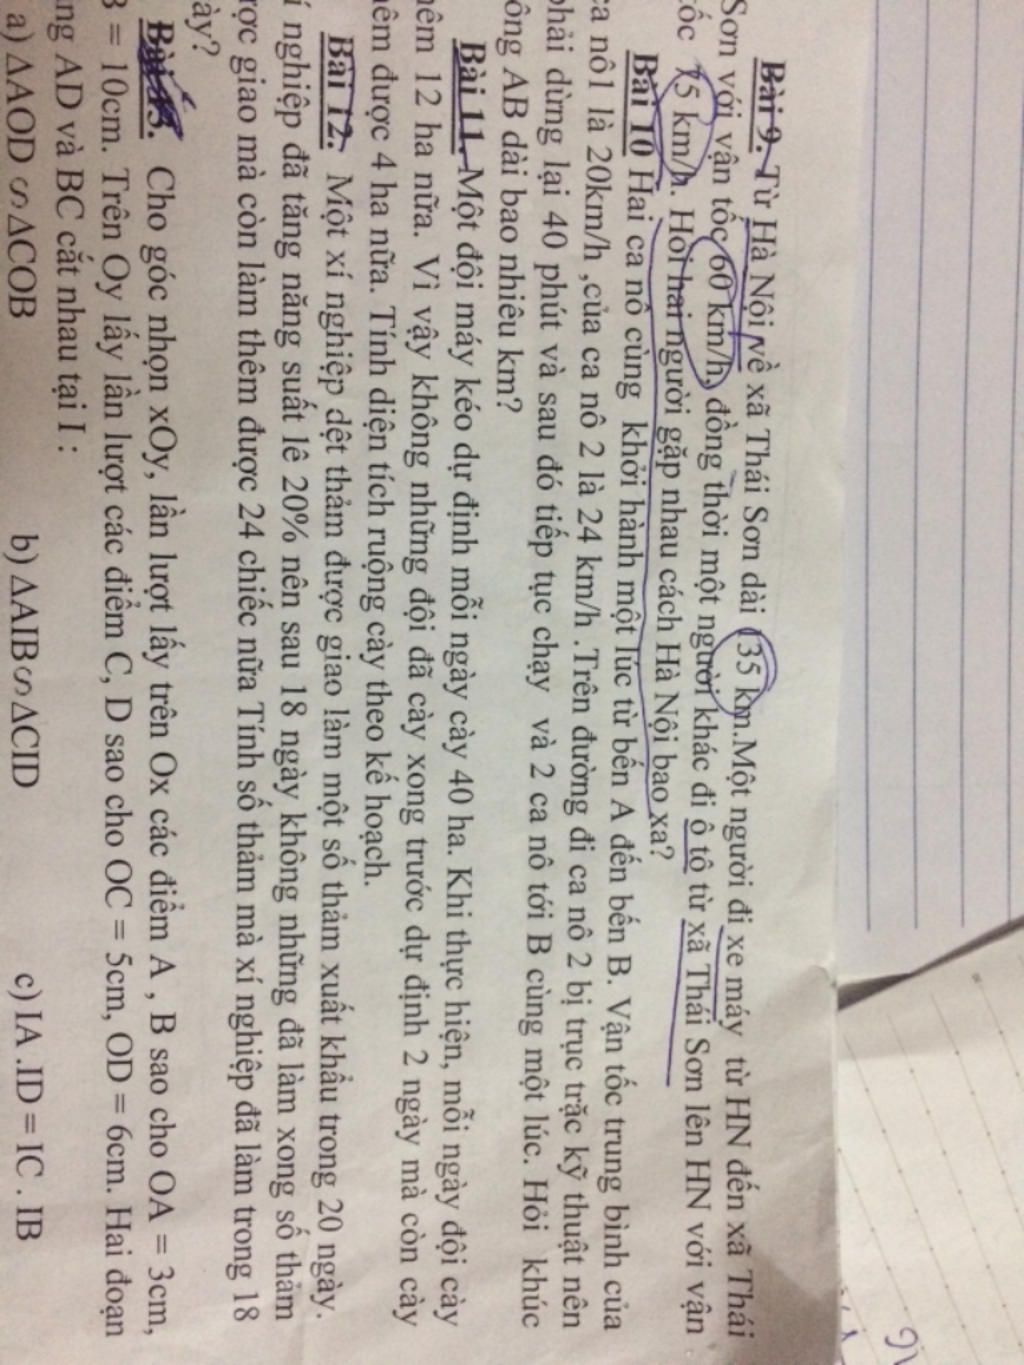 Bài 9. Từ Hà Nội về xã Thái Sơn dài 135 km.Một người đi xe máy từ HN đến xã Thái
Sơn với vận tốc 60 km/h, đồng thời một người khác đi ô tô từ xã Thái Sơn lên HN với vận
tốc 75 km/h. Hỏi hai người gặp nhau cách Hà Nội bao xa?
Bài 10 Hai ca nô cùng khởi hành một lúc từ bến A đến bến B. Vận tốc trung bình của
ca nô1 là 20km/h ,của ca nô 2 là 24 km/h .Trên đường đi ca nô 2 bị trục trặc kỹ thuật nên
phải dừng lại 40 phút và sau đó tiếp tục chạy và 2 ca nô tới B cùng một lúc. Hỏi khúc
ông AB dài bao nhiêu km?
Bài 11. Một đội máy kéo dự định mỗi ngày cày 40 ha. Khi thực hiện, mỗi ngày đội cày
hêm 12 ha nữa. Vì vậy không những đội đã cày xong trước dự định 2 ngày mà còn cày
hêm được 4 ha nữa. Tính diện tích ruộng cày theo kế hoạch.
Bài 12. Một xí nghiệp dệt thảm được giao làm một số thảm xuất khẩu trong 20 ngày.
í nghiệp đã tăng năng suất lê 20% nên sau 18 ngày không những đã làm xong số thảm
rợc giao mà còn làm thêm được 24 chiếc nữa Tính số thảm mà xí nghiệp đã làm trong 18
ày?
Bài 13. Cho góc nhọn xOy, lần lượt lấy trên Ox các điểm A , B sao cho OA = 3cm,
B = 10cm. Trên Oy lấy lần lượt các điểm C, D sao cho OC = 5cm, OD = 6cm. Hai đoạn
ng AD và BC cắt nhau tại I :
a) ΔAOD ∽ ΔCOB b) ΔAIB ∽ ΔCID c) IA .ID = IC . IB